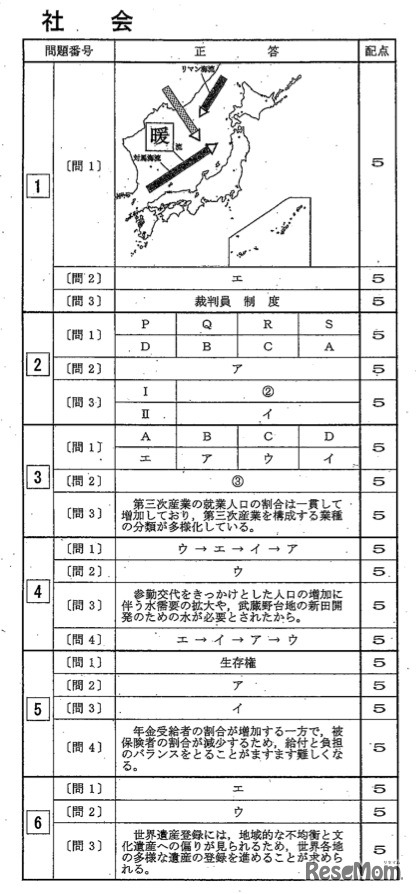 社 会
問題番号 正 答 配点
1
〔問1〕 5
リマン海流
暖
対馬海流 流
〔問2〕 エ 5
〔問3〕 裁判員 制 度 5
2
〔問1〕 P Q R S 5
D B C A
〔問2〕 ア 5
〔問3〕 Ⅰ ② 5
Ⅱ イ
3
〔問1〕 A B C D 5
エ ア ウ イ
〔問2〕 ③ 5
〔問3〕 第三次産業の就業人口の割合は一貫して 5
増加しており,第三次産業を構成する業種
の分類が多様化している。
4
〔問1〕 ウ → エ → イ → ア 5
〔問2〕 ウ 5
〔問3〕 参勤交代をきっかけとした人口の増加に 5
伴う水需要の拡大や,武蔵野台地の新田開
発のための水が必要とされたから。
〔問4〕 エ → イ → ア → ウ 5
5
〔問1〕 生存権 5
〔問2〕 ア 5
〔問3〕 イ 5
〔問4〕 年金受給者の割合が増加する一方で,被 5
保険者の割合が減少するため,給付と負担
のバランスをとることがますます難しくな
る。
6
〔問1〕 エ 5
〔問2〕 ウ 5
〔問3〕 世界遺産登録には,地域的な不均衡と文 5
化遺産への偏りが見られるため,世界各地
の多様な遺産の登録を進めることが求めら
れる。
ReseMom.